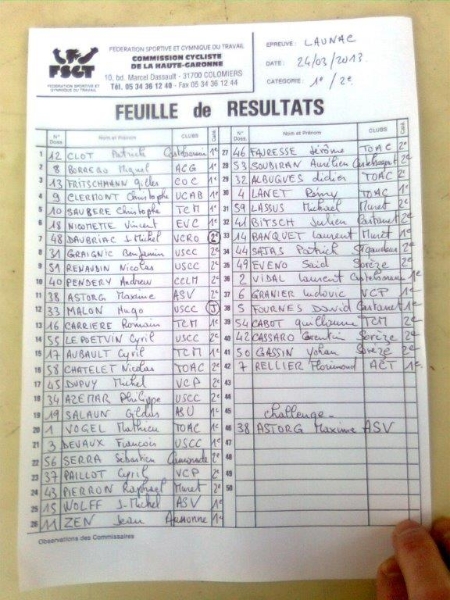 FEDERATION SPORTIVE ET GYMNIQUE DU TRAVAIL
COMMISSION CYCLISTE
DE LA HAUTE-GARONNE
10, bd. Marcel Dassault - 31700 COLOMIERS
Tél. 05 34 36 12 48 - Fax 05 34 36 12 44
FSGT
FEDERATION SPORTIVE ET
GYMNIQUE DU TRAVAIL
EPREUVE : LAUNAC
DATE : 24/03/2013
CATEGORIE : 1e / 2e
FEUILLE de RESULTATS
N° Doss. Nom et Prénom CLUBS
1 12 CLOT Patrick 1e
2 8 Miguel ACG 1e
3 13 FRITSCHMANN Gilles COC 1e
4 9 CLERMONT Christophe UCAB 1e
5 10 SAUBERE Christophe TCM 1e
6 18 NICOMETTE Vincent EVC 1e
7 48 DAUBRIAC J.Michel VCRO 2e
8 31 GRAIGNIC Benjamin USCC 2e
9 51 RENAUDIN Nicolas USCC 2e
10 40 PENDERY Andrew CCLM 2e
11 38 ASTORG Maxime ASV 2e
12 33 MALON Hugo USCC 3
13 16 CARRIERE Romain TCM 1e
14 55 LE POTVIN Cyril USCC 2e
15 17 AUBAULT Cyril TCM 1e
16 58 CHATELET Nicolas TOAC 2e
17 45 DUPUY Michel VCP 2e
18 34 AZEMAR Philippe USCC 2e
19 19 SALAUN Gildas 1e
20 1 VOGEL Mathieu TOAC 1e
21 3 DEVAUX Francois USCC 1e
22 56 SERRA Sébastien 2e
23 37 PAILLOT Cyril VCP 2e
24 43 PIERRON Raphael Muret 2e
25 15 WOLFF J-Michel ASV 1e
26 11 ZEN Jean Aussonne 1e
N° Doss. Nom et Prénom CLUBS
27 46 FAURESSE Jérôme TOAC 2e
28 53 SOUBIRAN Aurélien 2e
29 32 ALBUGUES didier TOAC 2e
30 4 LANET Rémy TOAC 1e
31 59 LASSUS Michael Muret 2e
32 41 BITSCH Julien 2e
33 14 BANQUET Laurent Muret 1e
34 44 SATAS Patrick 2e
35 49 EVENO Said Sorèze 2e
36 2 VIDAL Laurent 1e
37 6 GRANIER Ludovic VCP 1e
38 5 FOURNES David Castanet 1e
39 54 CABOT Guillaume TCM 2e
40 42 CASSARO Corentin Sorèze 2e
41 50 GASSIN Yohan Sorèze 2e
42 7 RELLIER Floumond ACT 1e
43
44
45 challenge
46 38 ASTORG Maxime ASV
47
48
49
50
Observations des Commissaires